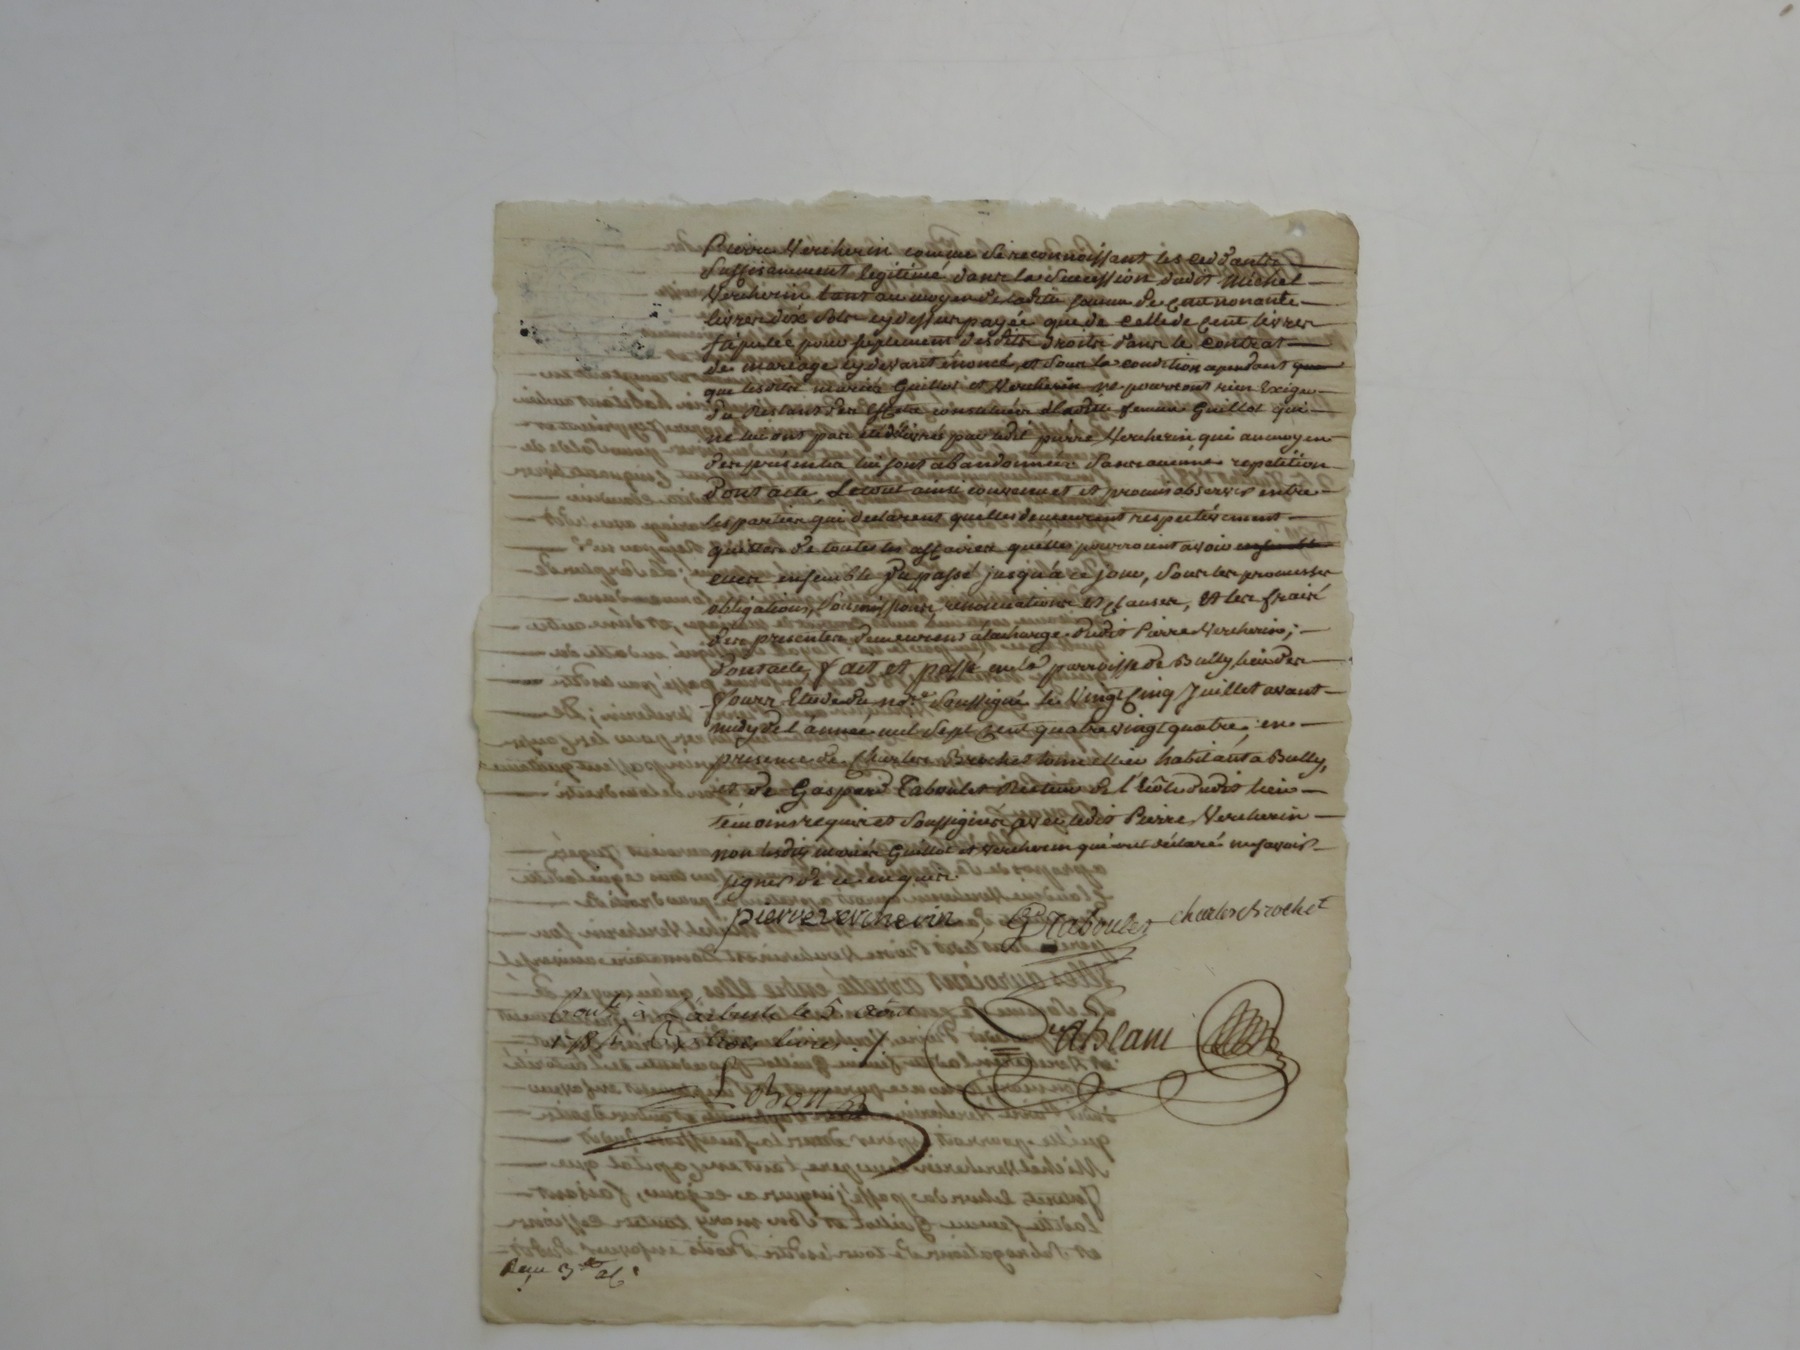 Pierre Vercherin comme se reconnoissant les cedants
suffisamment legitimé dans la succession dudit Michel
Vercherin tant au moyen de ladite somme de cent nonante
livres dix sols cy dessus payée que de celle de cent livres
stipulée pour suplement desdits droits dans le contrat
de mariage cy devant énoncé, et sous la condition cependant que
que lesdits mariés Guillot et Vercherin ne pourront rien exiger
du restant des effets constitués à ladite femme Guillot qui
ne lui ont pas été délivrés par ledit pierre Vercherin, qui au moyen
des presentes lui sont abandonnés sans aucune repetition
dont acte, Letout ainsi convenu et et promis observer entre
les parties qui declarent quelles demeurent respectivement
quittes de toutes les affaires quelles pourroient avoir ensemble
eues ensemble du passé jusqu'à ce jour, sous les promesses
obligations, soumissions, renonciations et clauses, et les frais
des presentes demeurent à la charge dudit Pierre Vercherin;
dont acte, fait et passé en la parroisse de Bully, lieu des
fours Etude du nore. soussigné le vingt cinq Juillet avant
midy de l'année mil sept cent quatre vingt quatre, en
presence de Charles Brochet tonnellier habitant a Bully,
et de Gaspard Taboulet Recteur de l'École dudit lieu
témoins requis et soussignés avec ledit Pierre Vercherin
non lesdits mariés Guillot et Vercherin qui ont déclaré ne savoir
signer de ce enquis
pierre vercherin, G Taboulet charles Brochet
à Larbresle le 5 août
1784 livres
Reçu 3